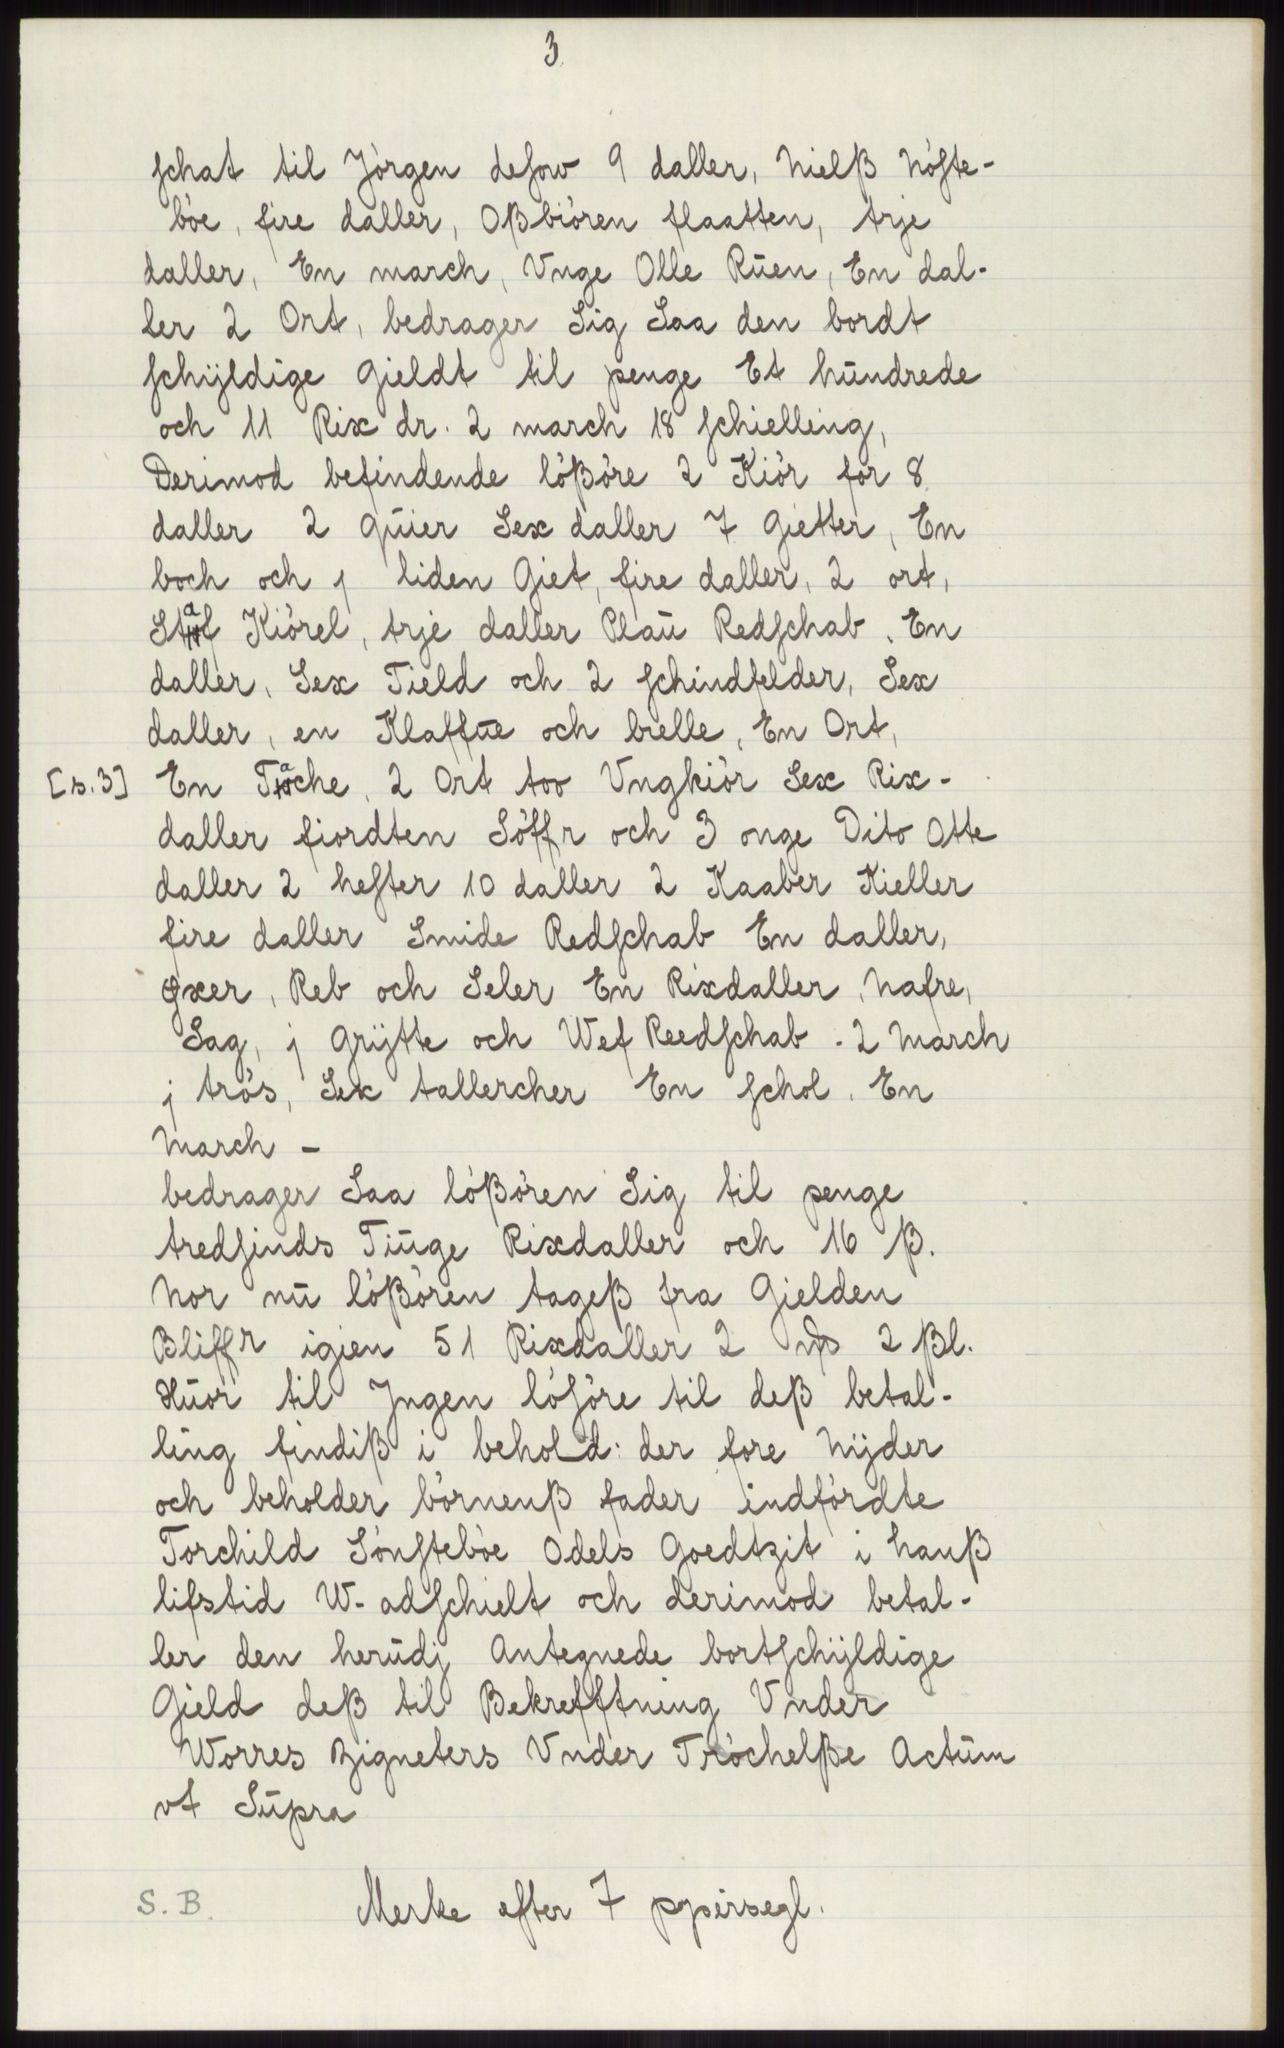 3
schat til Jörgen desow 9 daller, Nielß Nöste-
böe, fire daller, Oßbiören flaatten, trje
daller, En march, Vnge Olle Rūen, En dal-
ler 2 Ort, bedrager Sig Saa den bordt
schÿldige Gieldt til penge Et hūndrede
och 11 Rix dr. 2 march 18 schielling,
Derimod befindende lößöre 2 Kiör for 8
daller 2 Qūier Sex daller 7 Gietter, En
boch och j liden Giet, fire daller, 2 ort,
Staf Kiörel, trje daller Plaū Redschab, En
daller, Sex Tield och 2 schindfelder, Sex
daller, en Klaffūe och bielle, En Ort,
[s.3] En Tache, 2 Ort too Vngkiör Sex Rix-
daller fiordten Söffr och 3 onge Dito Otte
daller 2 hester 10 daller 2 Kaaber Kieller
fire daller Smide Redschab En daller,
Øxer, Reb och Seler En Rixdaller, Nafre,
Sag, j Grÿtte och Wef Reedschab. 2 March
j trös, Sex tallercher En schol. En
March -
bedrager Saa lößören Sig til penge
tredsinds Tiūge Rixdaller och 16 ß.
Nor nū lößören tageß fra Gielden
Bliffr igien 51 Rixdaller 2 mþ 2 ßl.
Hūor til Jngen lösöre til deß betal-
ling findiß i behold: der fore Nÿder
och beholder börnenß fader indfördte
Torchild Sönsteböe Odels Goedtzit i hanß
lifstid W-adschielt och derimod betal-
ler den herūdj Antegnede bortschÿldige
Gield deß til Bekrefftning Vnder
Worres Zigneters Vnder Tröchelße Actūm
vt Sūpra
S.B. Merke efter 7 papirsegl.